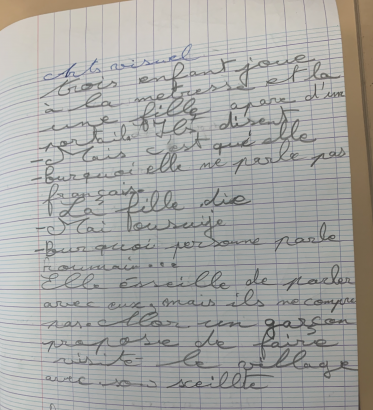 Arts visuel
trois enfant joue
à la metresse et la
une fille apare d'un
portail Ils disent
- Mais c'est qué elle
- Pourquoi elle ne parle pas
française
La fille die
- Mai ousuije
- Pourquoi personne parle
roumain...
Elle esseille de parler
avec eux, mais ils ne compre
pas. Alor un garçon
propose de faire
visite le village
avec son seille